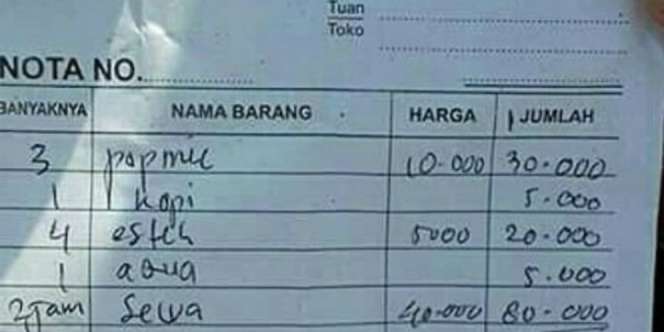 Tuan
Toko
NOTA NO.
BANYAKNYA NAMA BARANG HARGA JUMLAH
3 popmie 10.000 30.000
1 kopi 5.000
4 esteh 5000 20.000
1 aqua 5.000
2 Jam Sewa 40.000 80.000